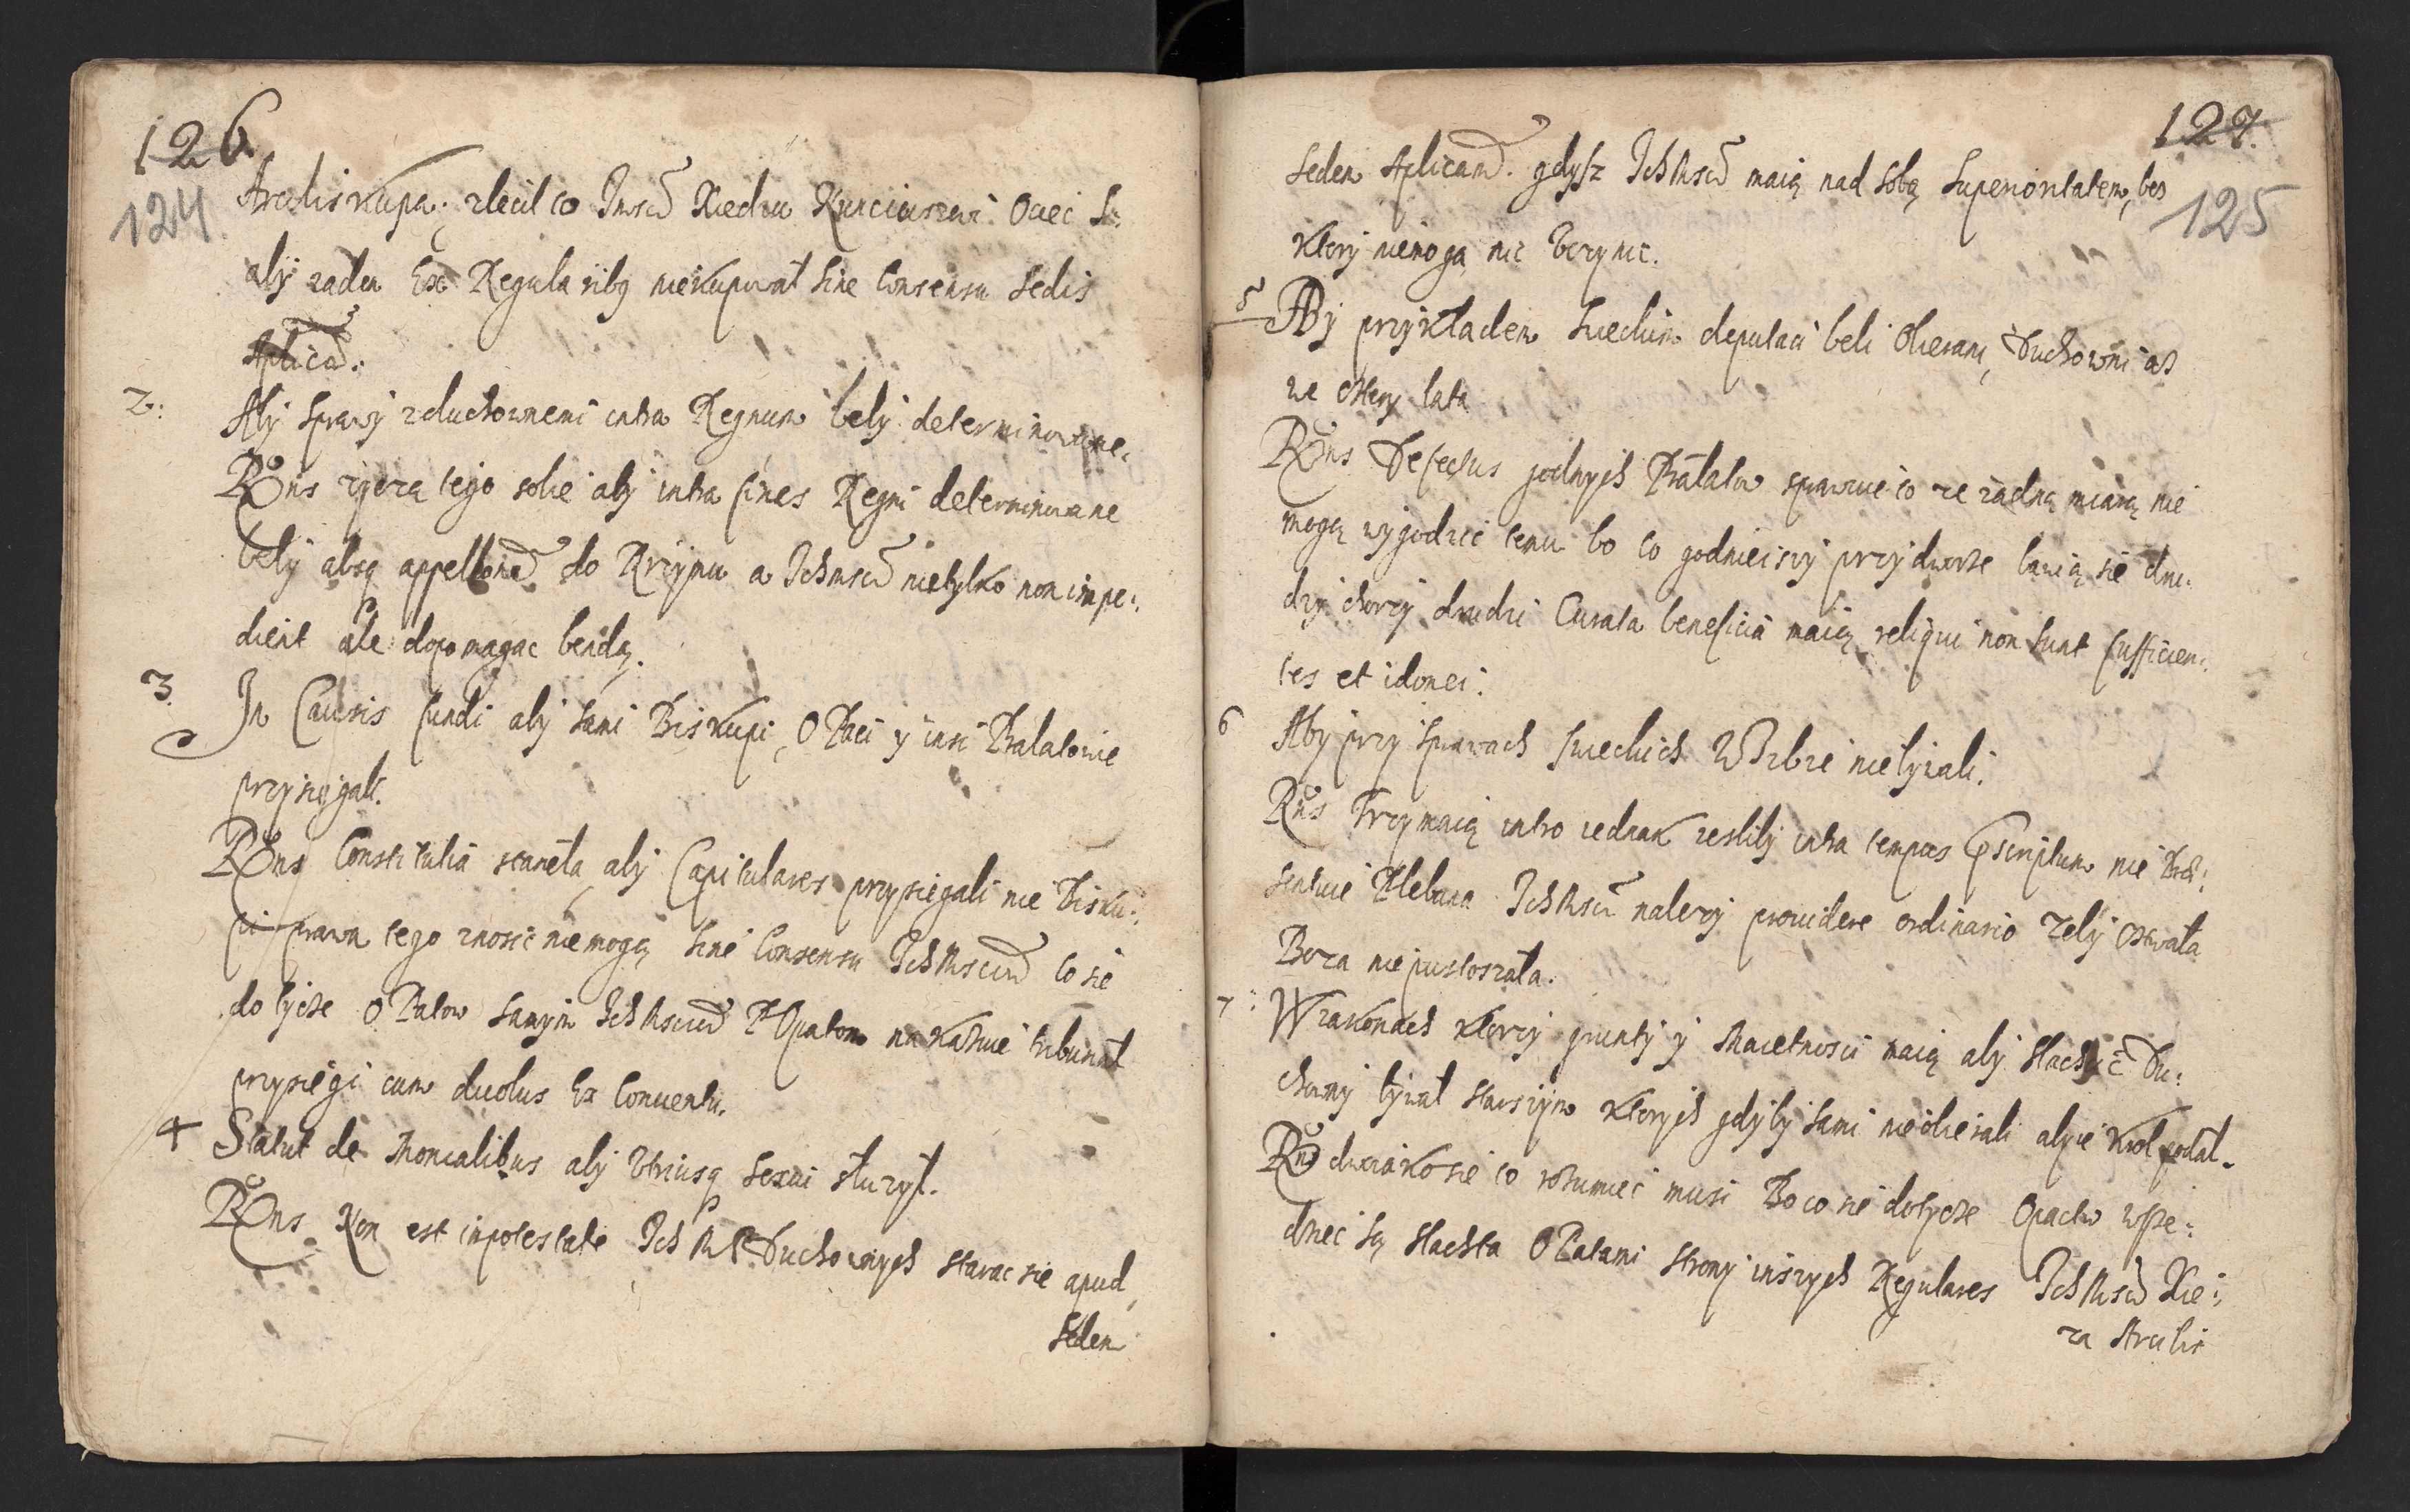 126
124
Arcibiskupa; zlecił co Jmscĩ Xiedzu Nunciuszowi Oiec S:
aby zaden Ex Regularibq niekupował sine consensu Sedis
Aplicae:
2: Aby sprawy zduchownemi intra Regnum bely determinowane.
Rons zyczą tego sobie aby intra fines Regni determinowane
bely absq appellone do Rzymu a Ichmsci nietylko non impe:
dient ale dopomagac bendą.
3 In Causis fundi aby sami Biskupi, OPaci y insi Prałatowie
przysięgali.
Rons Constitutia stanęła, aby Capitulares przysięgali nie Bisku:
pi prawa tego znosic niemogą sine Consensu IchMsciow co sie
dotycze OPatow samym IchMsciow POpatom nakazuie tribunał
przysięgi cum duobus Ex Conventu.
4 Statut de Monialibus aby Utriusq sexui służył.
Rons Non est inpotestate Ich M Duchownych starac sie apud
Sedem
127.
125
Sedem Aplicam. gdysz IchMsci maią nad sobą Superioritatem, bes
ktory niemogą nic Uczynic.
5 ABy przykładem Swieckim deputaci beli Obierani, Duchowni as
we cztery lata
Rons Defectus godnych Prałatow sprawuie to ze żadną miarą nie
mogą wygodzic temu bo co godnieiszy przydworze bawią sie dru:
dzy chorzy drudzi Curata beneficia maią reliqui non sunt sufficien:
tes et idonei.
6 Aby przy sprawach swieckich WIzbie niebywali.
Rns Trzymaią intro iednak iesliby intra tempus Pscriptum nie Prae:
sentuie Plebana IchMsci nalezy prouidere ordinario zeby chwała
Boza niepustoszała.
7: Wzakonach ktorzy grunty y Maietnosci maią aby slachcic Du:
chowny bywał starszym ktorych gdyby sami nieobierali abyie Krol podał.
Rns dwoiako sie to rozumiec musi Bo co sie dotycze Opactw wsze:
dnec są slachta OPatami strony inszych Regulares IchMsci Xie:
za Arcibis